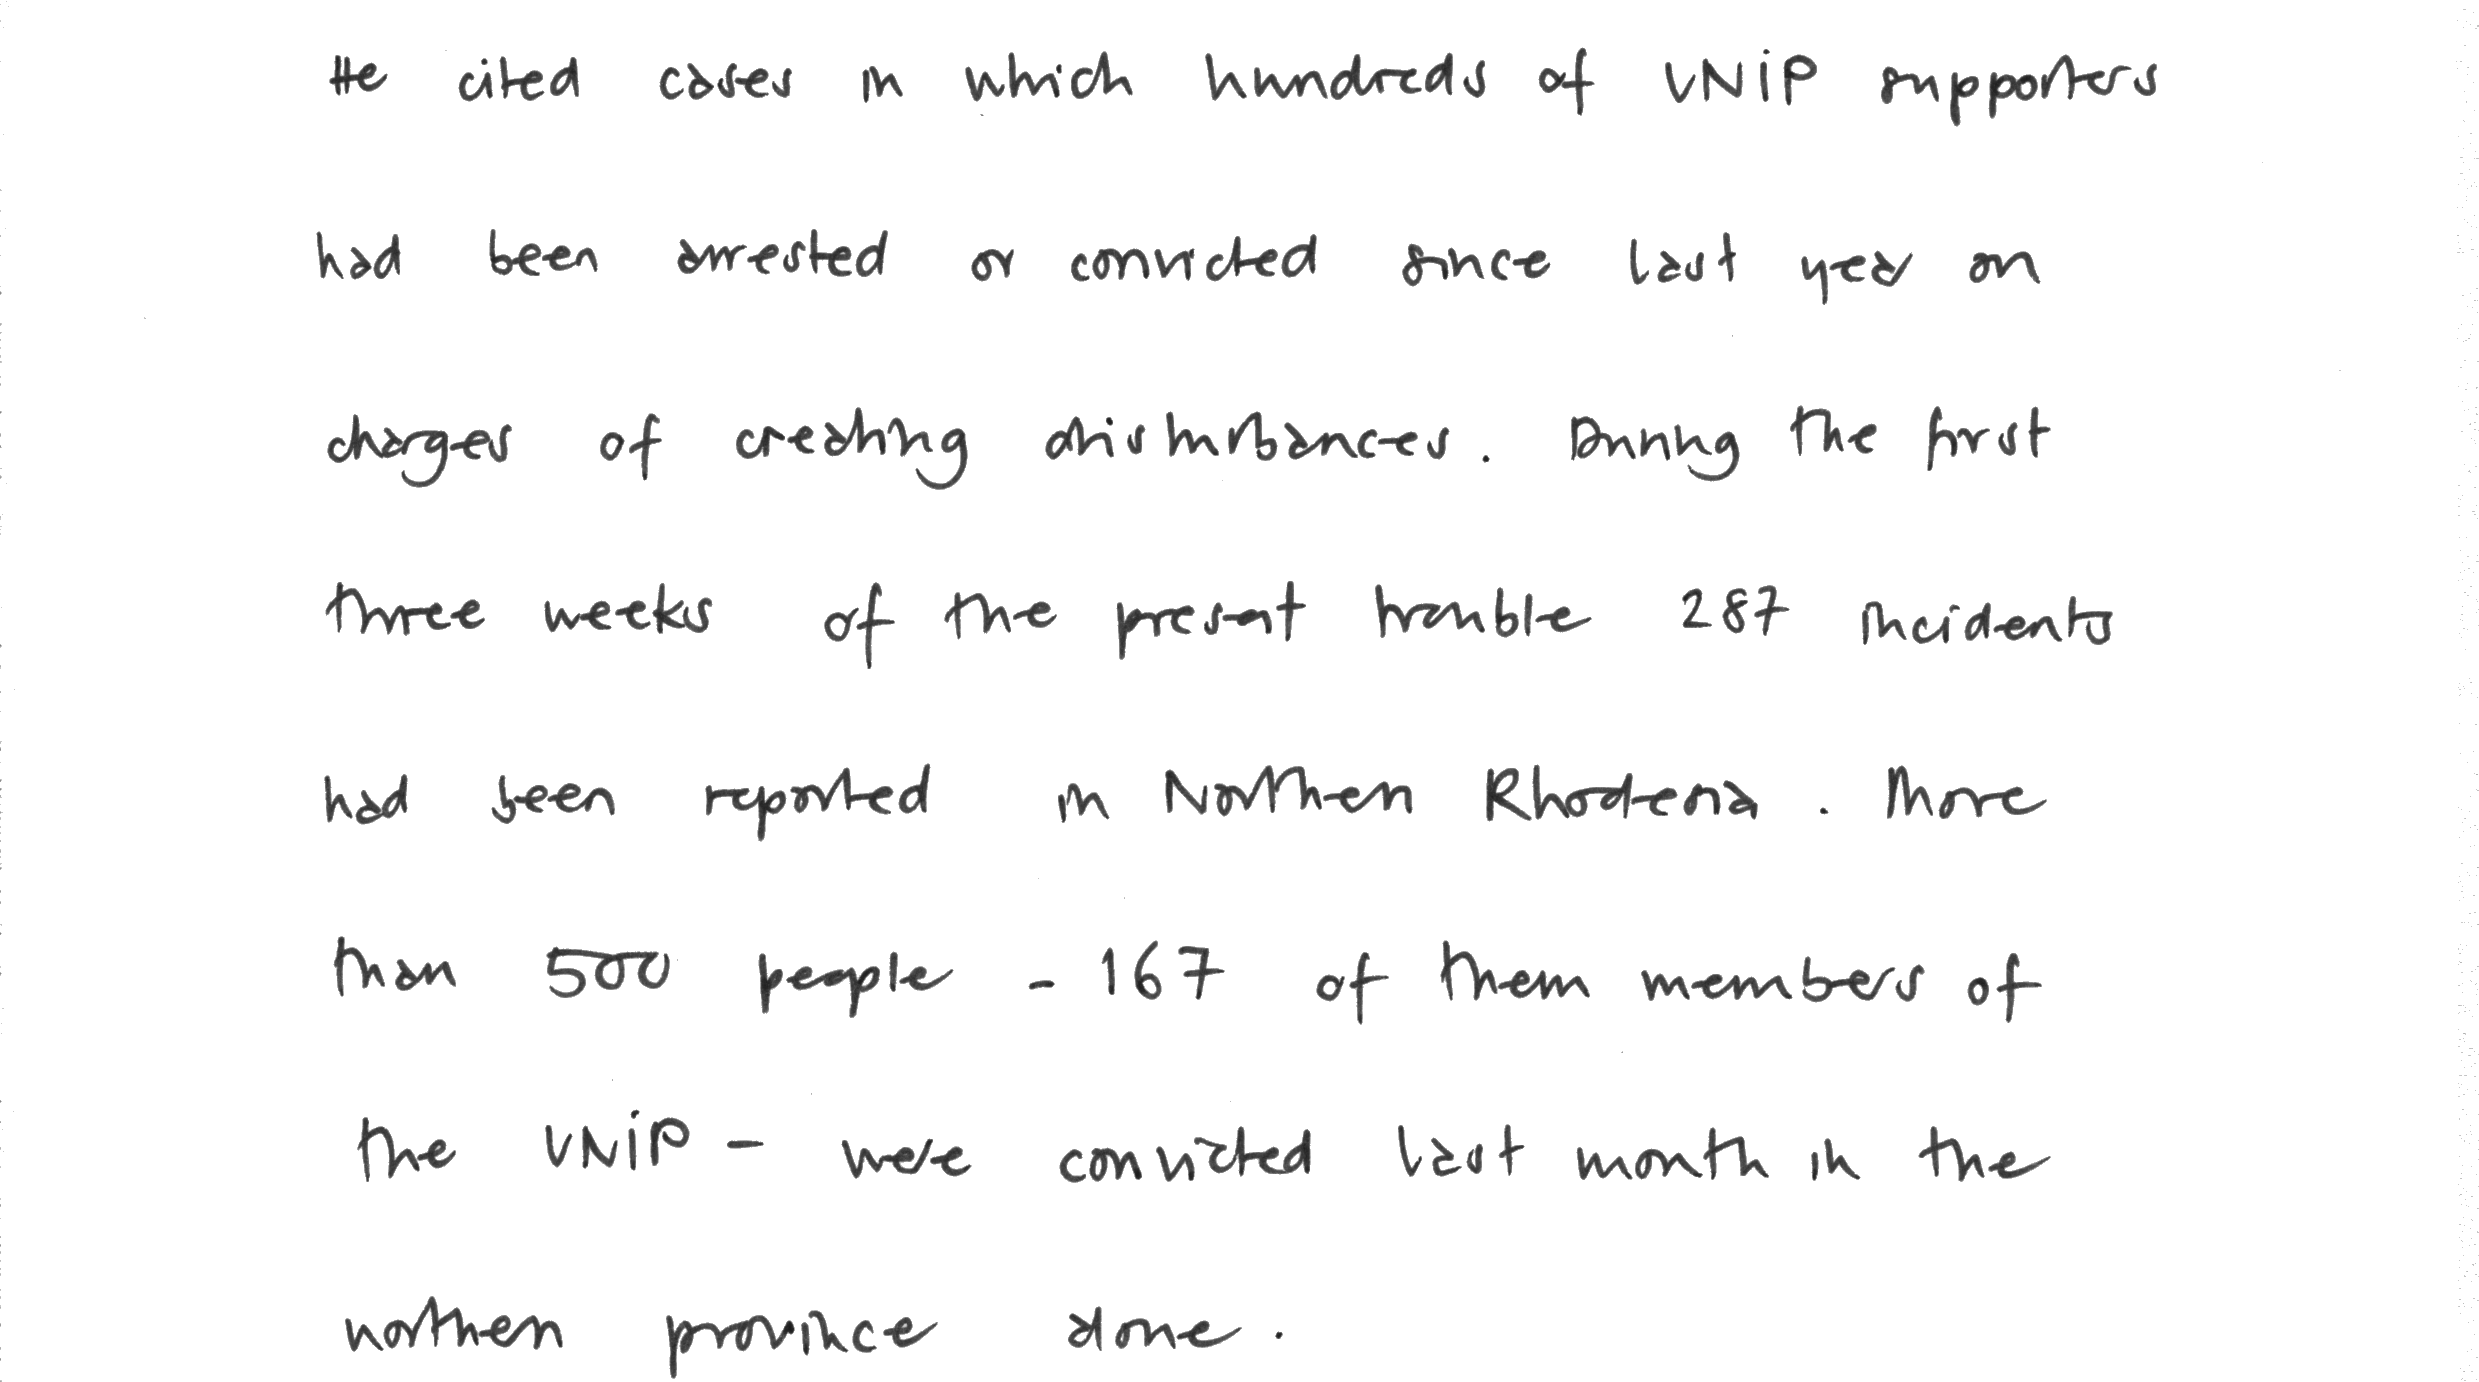 He cited cases in which hundreds of UNIP supporters
had been arrested or convicted since last year on
charges of creating disturbances. During the first
three weeks of the present trouble 287 incidents
had been reported in Northern Rhodesia. More
than 500 people - 167 of them members of
the UNIP - were convicted last month in the
northern province alone.